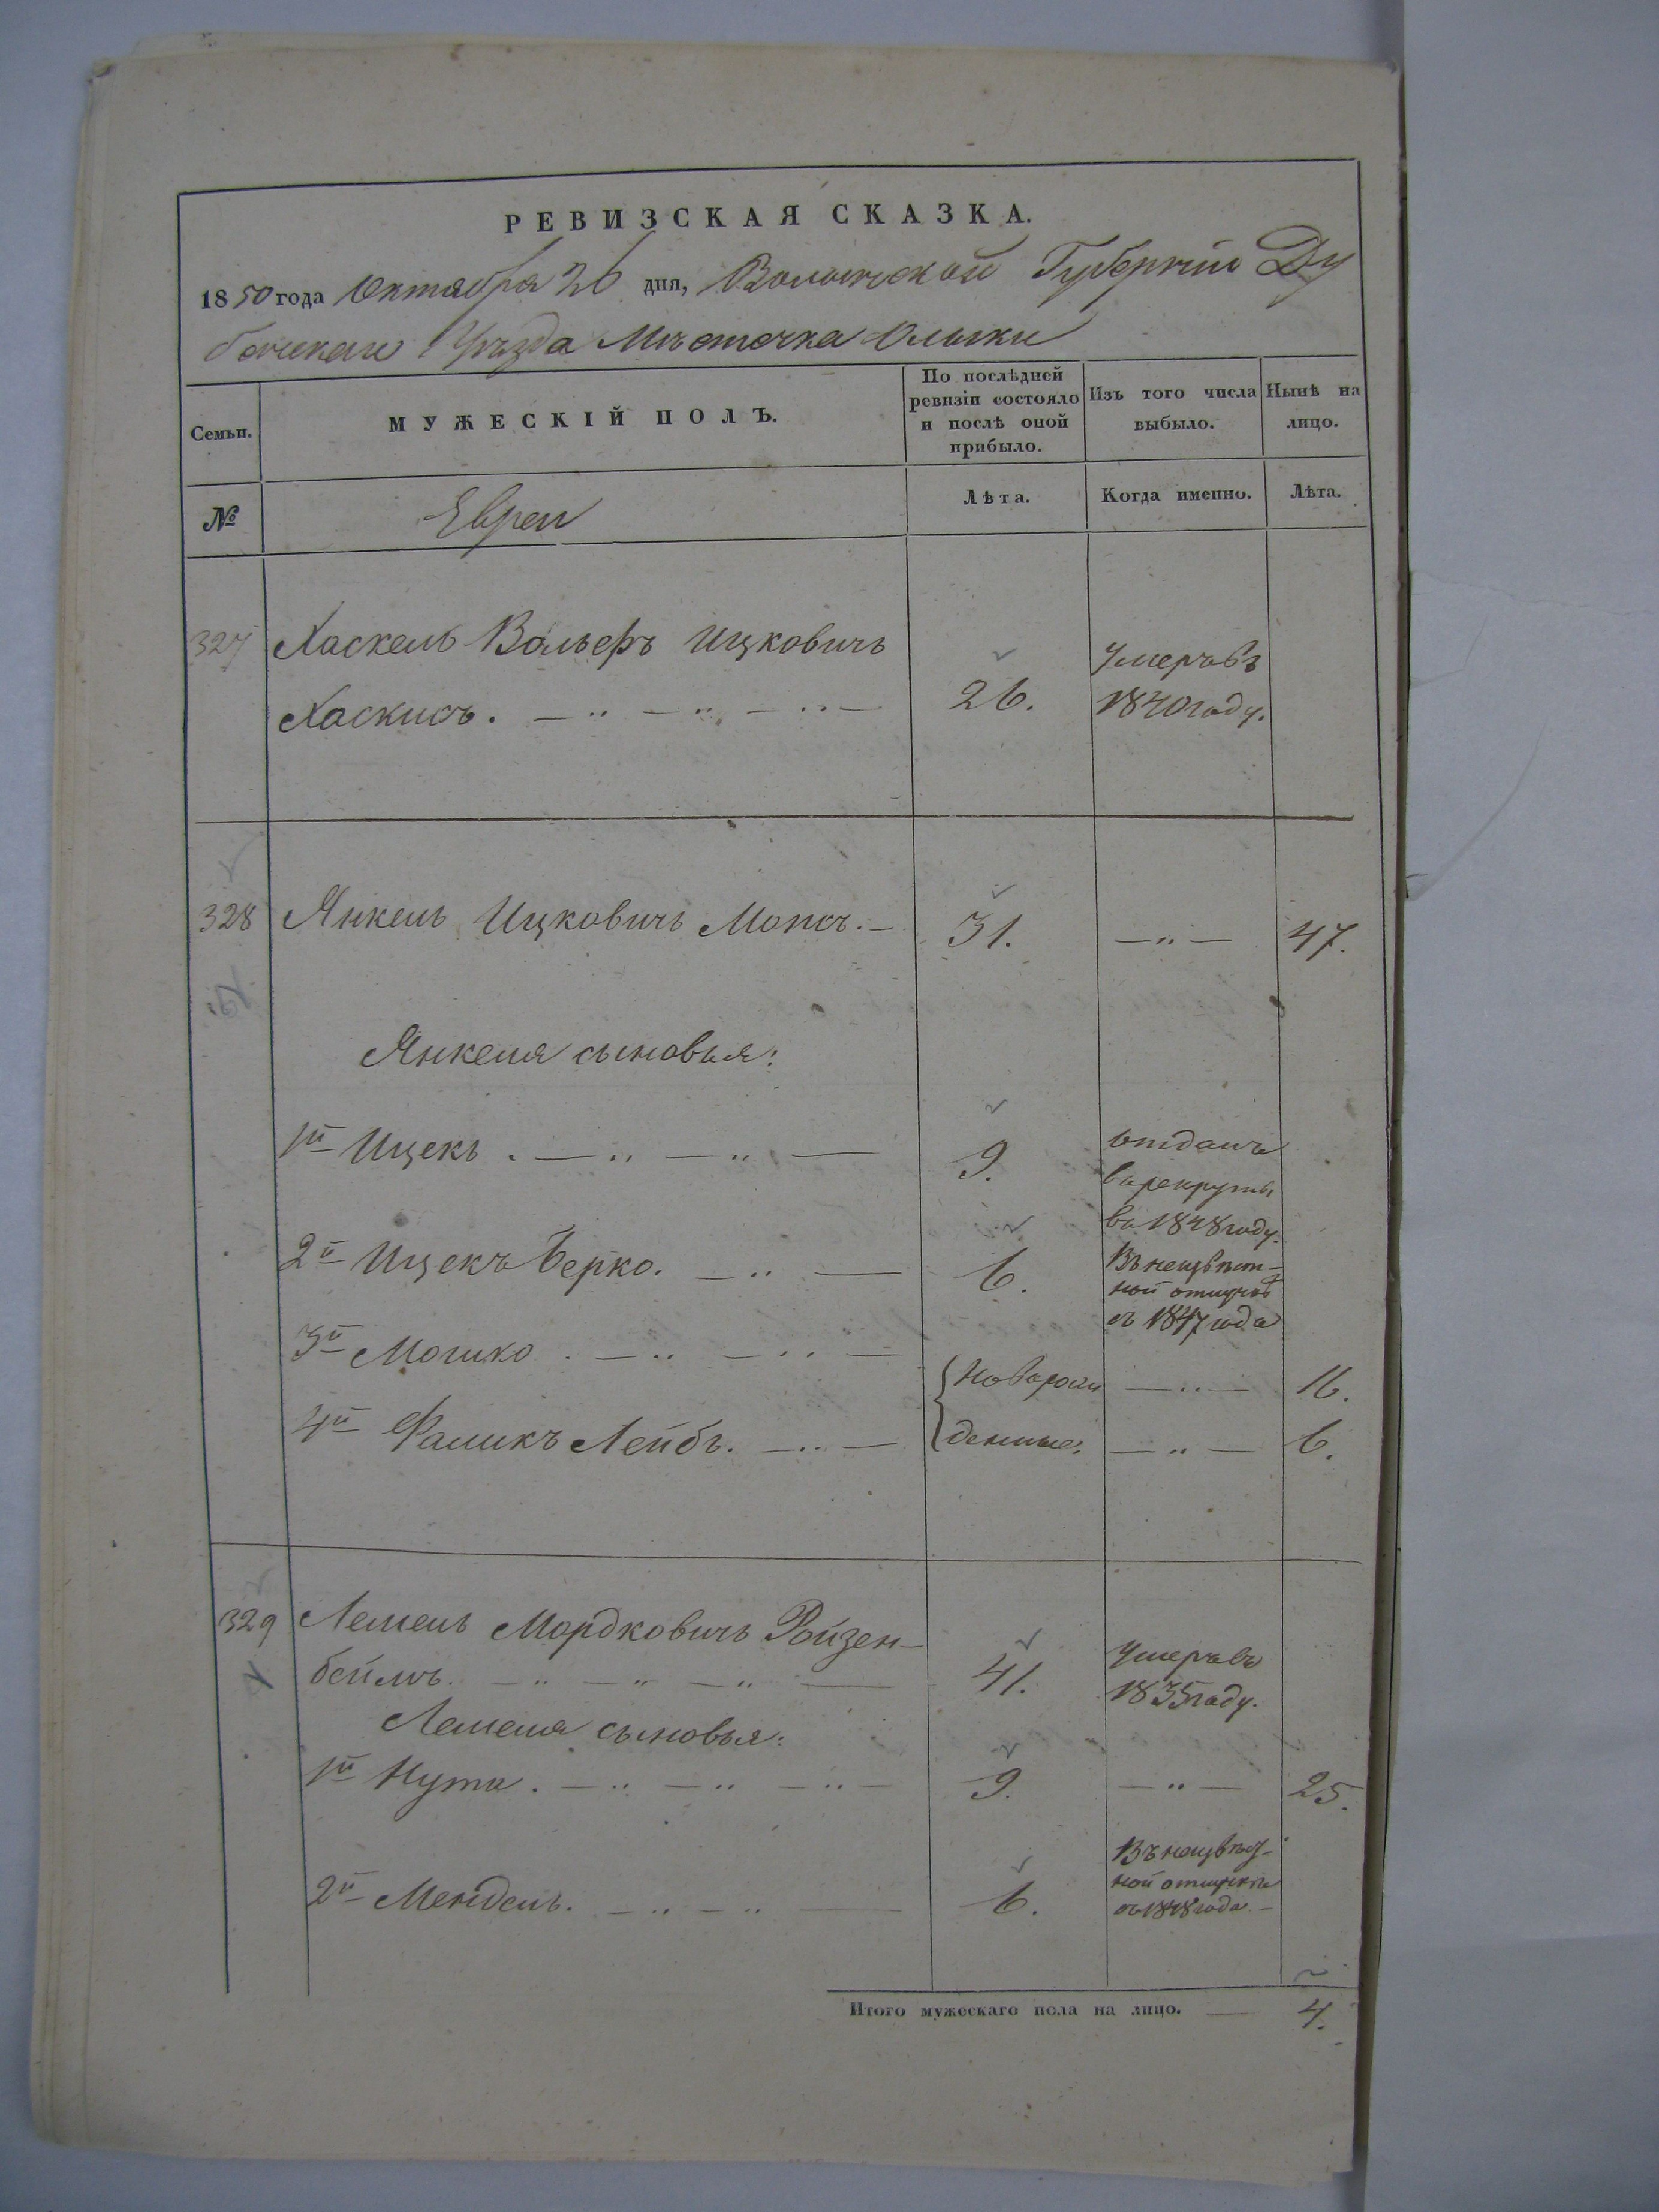 РЕВИЗСКАЯ СКАЗКА.
1850 года Октября 26 дня, Волынской Губерніи Ду
бенскаго Уѣзда Мѣстечка Олыки
Семьи.
МУЖЕСКІЙ ПОЛЪ.
По послѣдней
ревизіи состояло
и послѣ оной
прибыло.
Изъ того числа
выбыло.
Нынѣ на
лицо.
№
Евреи
Лѣта.
Когда именно.
Лѣта.
327 Хаскель Вольфъ Ицковичъ
Хаскисъ. — " — " — " — 26.
Умеръ въ
1840 году.
328 Янкель Ицковичъ Мопсъ. — 31. — " — 47.
Янкеля сыновья:
1й Ицекъ. — " — " — 9.
отданъ
въ рекруты
въ 1848 году.
2й Ицекъ Берко. — " — 6.
Въ неизвѣст-
ной отлучкѣ
съ 1847 года
3й Мошко. — " — " — { Новорож — " — 16.
4й Фаликъ Лейбъ. — " — { денные. — " — 6.
329 Лемель Мордковичъ Ройзен-
беймъ. — " — " — " — 41.
Умеръ въ
1835 году.
Лемеля сыновья:
1й Нута. — " — " — " — 9. — " — 25.
2й Мендель. — " — " — 6.
Въ неизвѣст-
ной отлучкѣ
съ 1848 года —
Итого мужескаго пола на лицо. — 4.